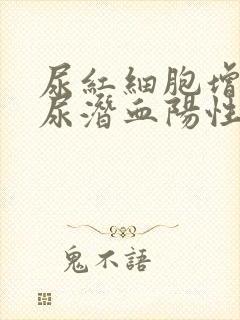 尿紅細胞增
尿潛血陽性
鬼不語